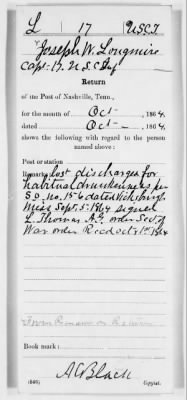 L 17 U.S.C.T.
Joseph W. Longmire
Capt. 17. U S C Inf
Return
of the Post of Nashville, Tenn.,
for the month of Oct , 1864.
dated Oct , 1864,
shows the following with regard to the person
named above:
Post or station
Remarks: Post discharged for
habitual drunkenness per
S.O. no. 156 dated Vicksburg
Miss Sept. 5. 1864 signed
L. Thomas A.G. order Sec. of
War order Recd Oct 1st 1864
Book mark:
A C Black
(646) Copyist.